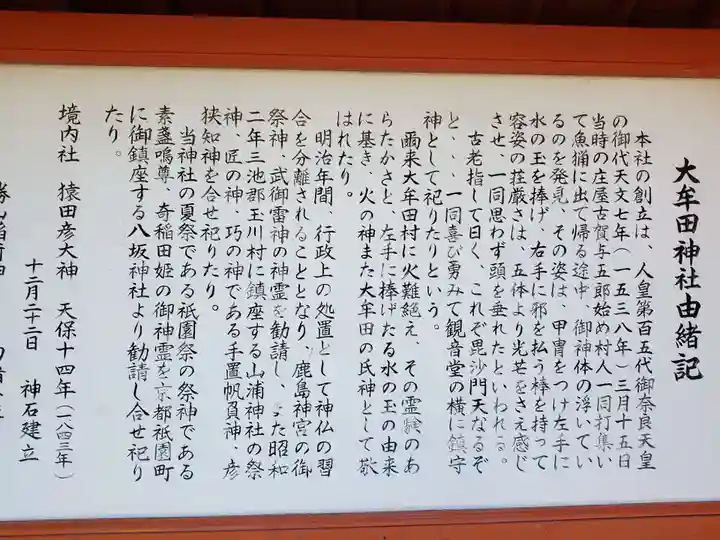 大牟田神社由緒記
本社の創立は、人皇第百五代御奈良天皇
の御代天文七年(一五三八年)三月十五日
当時の庄屋古賀与五郎始め村人一同打集い
て魚捕に出て帰る途中、御神体の浮いてい
るのを発見、その姿は、甲冑をつけ左手に
水の玉を捧げ、右手に邪を払う棒を持って
容姿の荘厳さは、五体より光芒をさえ感じ
させ、一同思わず頭を垂れたといわれる。
古老指して曰く、これぞ毘沙門天なるぞ
と、、、一同喜び勇みて観音堂の横に鎮守
神として祀りたりという。
爾来大牟田村に火難絶え、その霊験のあ
らたかさと、左手に捧げたる水の玉の由来
に基き、火の神また大牟田の氏神として敬
はれたり。
明治年間、行政上の処置として神仏の習
合を分離されることとなり、鹿島神宮の御
祭神、武御雷神の神霊を勧請し、また昭和
二年三池郡玉川村に鎮座する山浦神社の祭
神、匠の神、巧の神である手置帆負神、彦
狭知神を合せ祀りたり。
当神社の夏祭である祇園祭の祭神である
素盞嗚尊、奇稲田姫の御神霊を京都祇園町
に御鎮座する八坂神社より勧請し合せ祀り
たり。
境内社 猿田彦大神 天保十四年(一八四三年)
十二月二十二日 神石建立